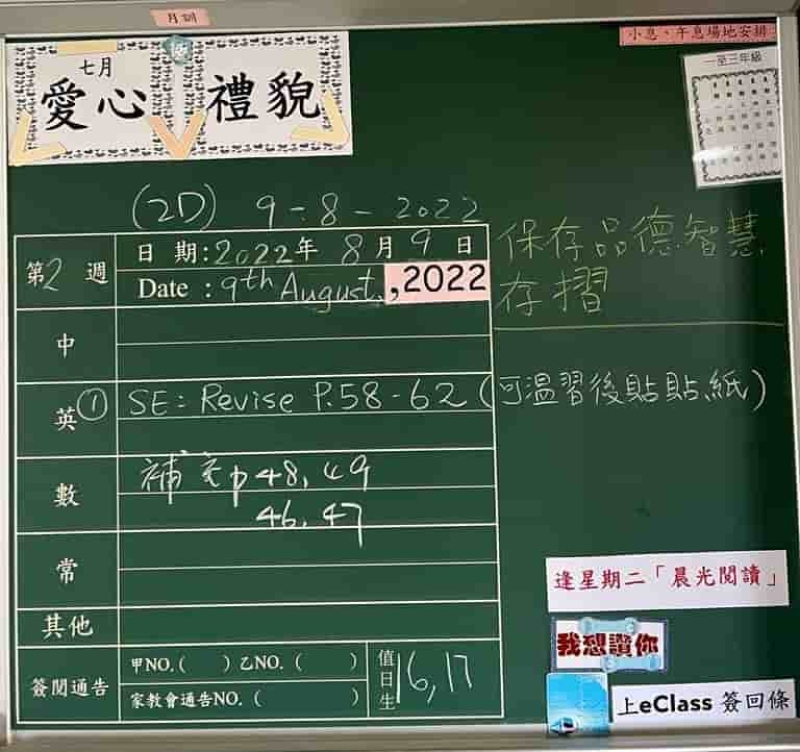 月訓
小息、午息場地安排
七月
愛心 禮貌
一至三年級
(2D) 9-8-2022
第2週
日期:2022年8月9日
Date : 9th August, ,2022
保存品德智慧
存摺
中
英 ① SE: Revise P.58-62 (可溫習後貼貼紙)
數 補充p48, 49
46, 47
常
其他
逢星期二「晨光閱讀」
我想讚你
簽閱通告
甲NO.( ) 乙NO.( )
家教會通告NO.( )
值日生 16, 17
上eClass 簽回條